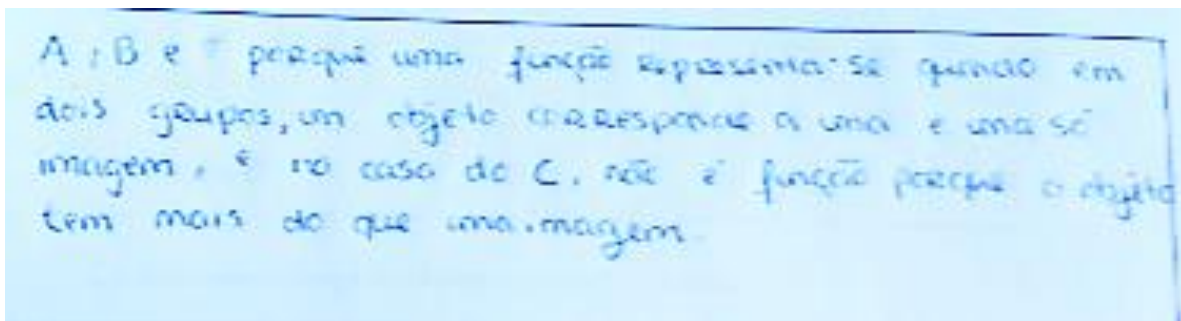 A, B e porque uma função representa-se quando em
dois grupos, um objeto corresponde a uma e uma só
imagem, e no caso do C, não é função porque o objeto
tem mais do que uma imagem.